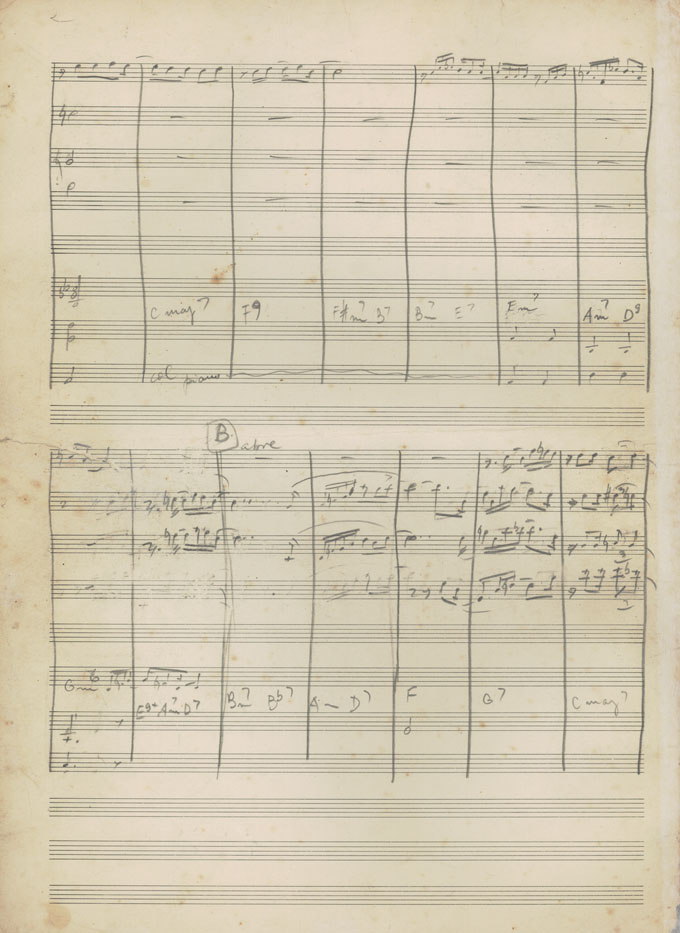 C maj7 F9 F#m7 B7 Bm7 E7 Em7 Am7 D9
col piano
B. abre
Gm6 E9+ Am7 D7 Bm7 Bb7 Am D7 F G7 C maj7